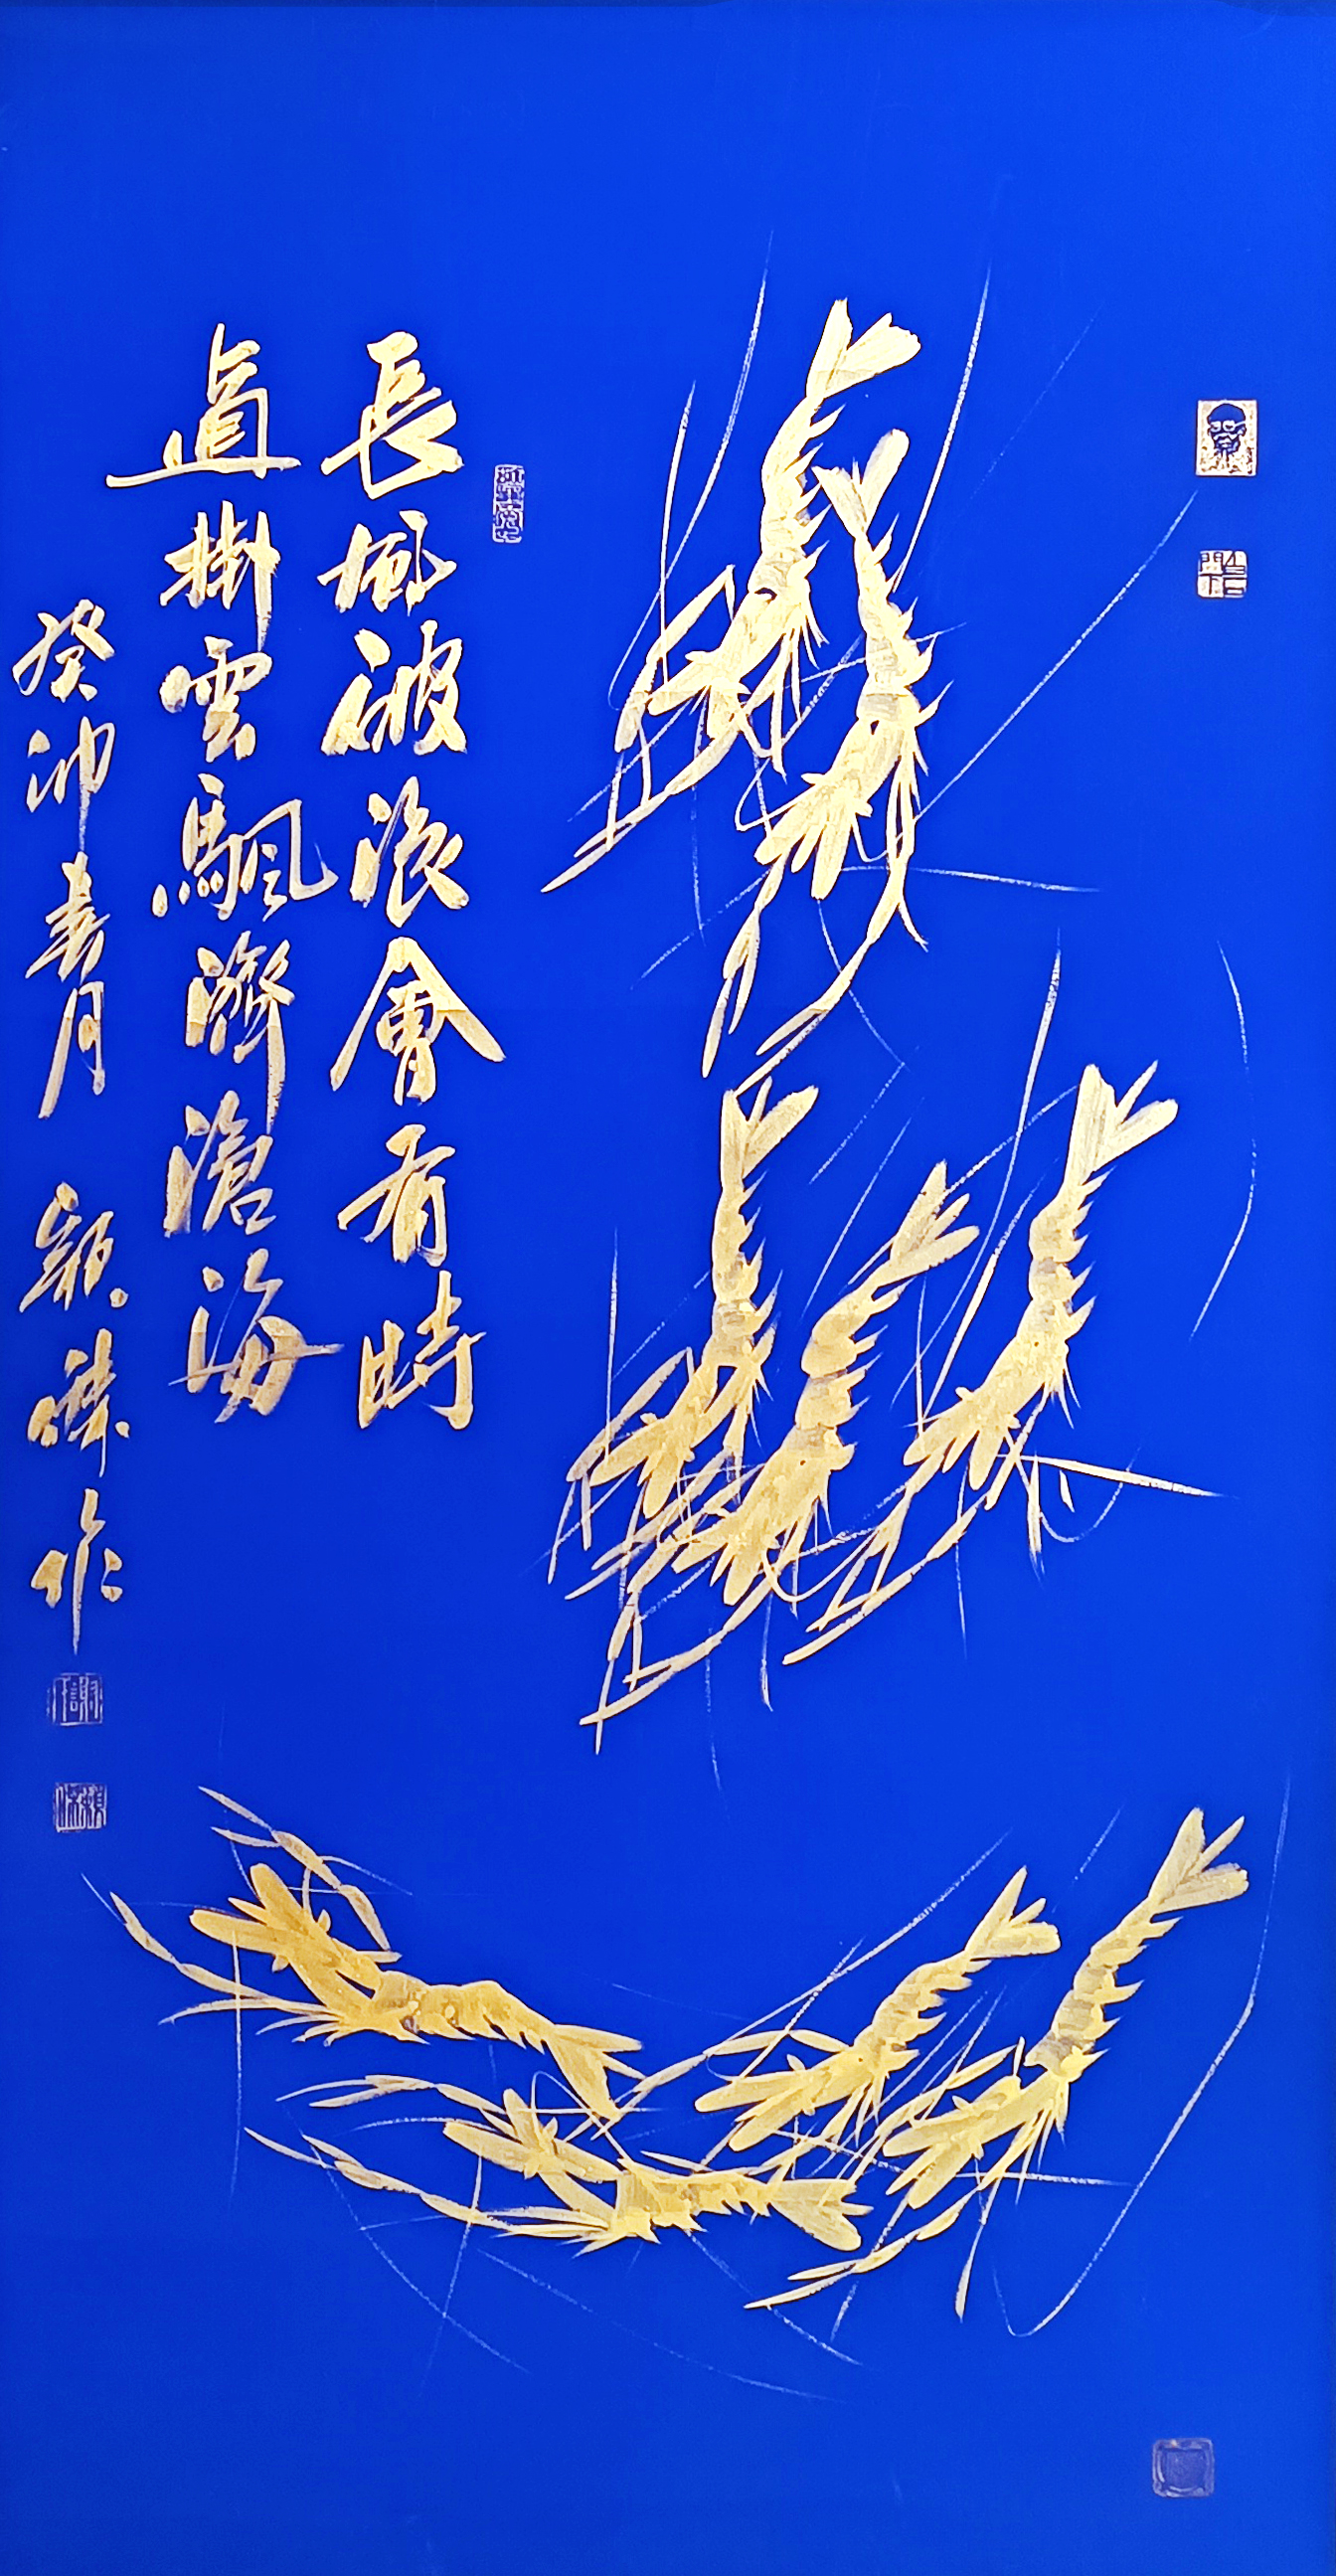 長風破浪會有時
直掛雲颿濟滄海
癸卯春月 穎珠作